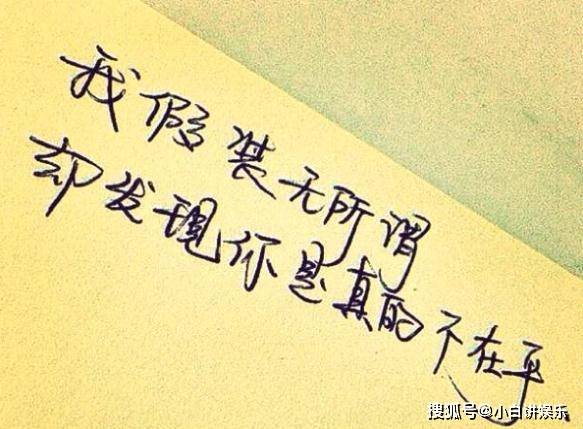 我假装无所谓
却发现你是真的不在乎
搜狐号@小白讲娱乐